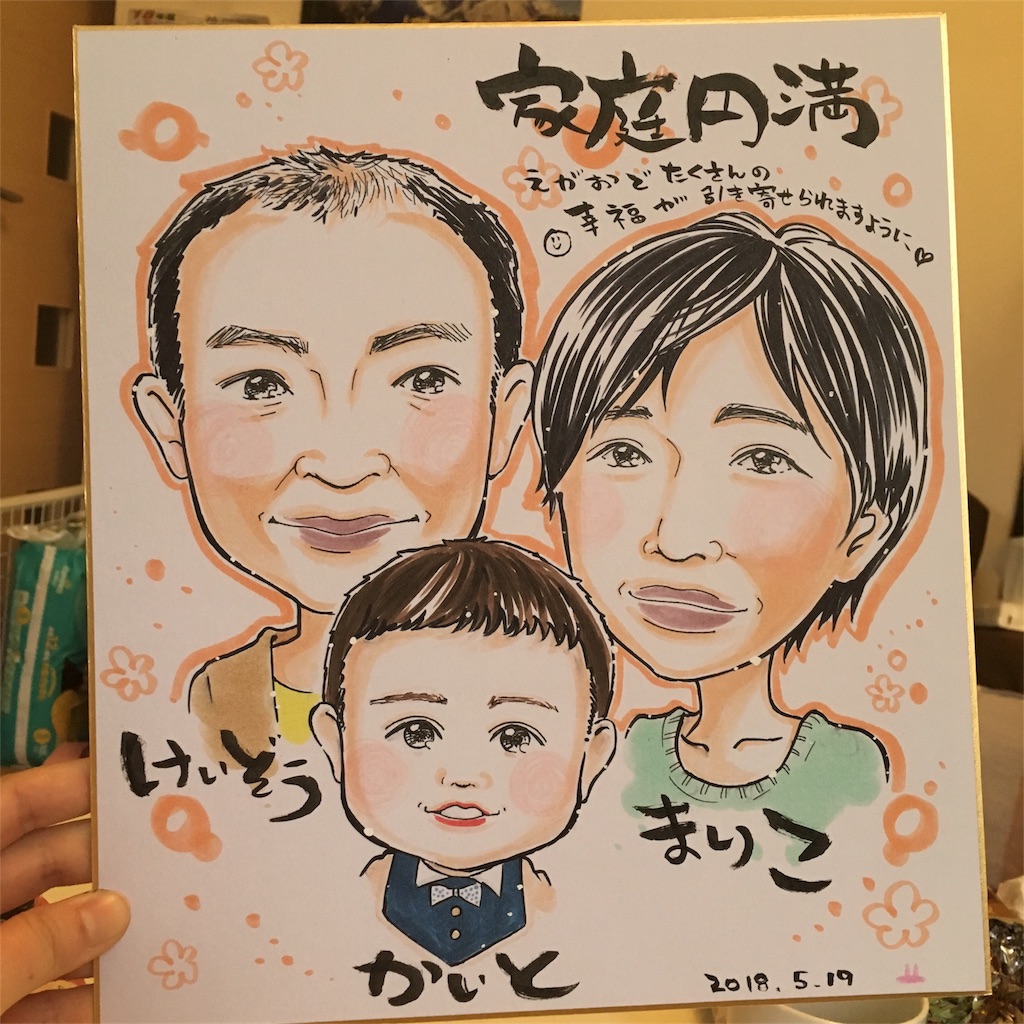 家庭円満
えがおで たくさんの
幸福が 引き寄せられますように
けいぞう
まりこ
かいと
2018.5.19